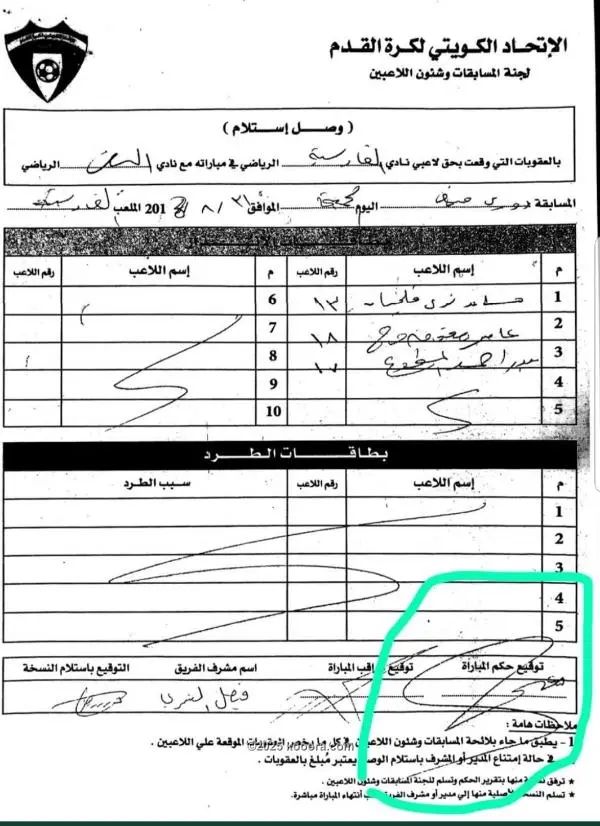 الإتحاد الكويتي لكرة القدم
لجنة المسابقات وشئون اللاعبين
( وصل إستلام )
بالعقوبات التي وقعت بحق لاعبي نادي القادسية الرياضي في مباراته مع نادي الرياضي
المسابقة دوري اليوم الجمعة الموافق ٣١ / ٨ / 201 الملعب القادسية
م إسم اللاعب رقم اللاعب م إسم اللاعب رقم اللاعب
1 ١٣ 6
2 عامر ١٨ 7
3 بدر احمد المطوع ١٧ 8
4 9
5 10
بطاقات الطرد
م إسم اللاعب رقم اللاعب سبب الطرد
1
2
3
4
5
توقيع حكم المباراة توقيع مراقب المباراة اسم مشرف الفريق التوقيع باستلام النسخة
فيصل
ملاحظات هامة :
1 - يطبق ما جاء بلائحة المسابقات وشئون اللاعبين في كل ما يخص العقوبات الموقعة علي اللاعبين .
في حالة إمتناع المدير أو المشرف باستلام الوصل يعتبر مُبلغ بالعقوبات .
★ ترفق نسخة منها بتقرير الحكم وتسلم للجنة المسابقات وشئون اللاعبين .
★ تسلم النسخة الأصلية منها إلي مدير أو مشرف الفريق عقب أنتهاء المباراة مباشرة.
©2025 kooora.com